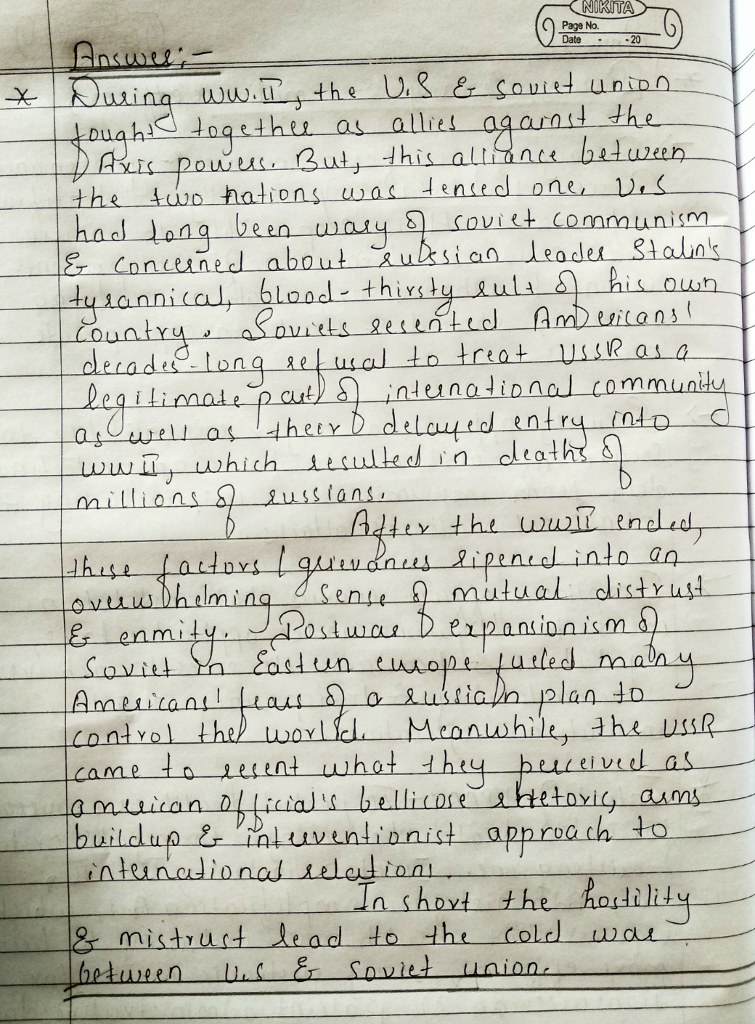 NIKITA
Page No.
Date . . -20
Answer:-
* During WW.II, the U.S & Soviet union
fought together as allies against the
Axis powers. But, this alliance between
the two nations was tensed one. U.S
had long been wary of soviet communism
& concerned about russian leader Stalin's
tyrannical, blood-thirsty rule of his own
country. Soviets resented Americans'
decades-long refusal to treat USSR as a
legitimate part of international community
as well as their delayed entry into
WWII, which resulted in deaths of
millions of russians.
After the WWII ended,
these factors / grievances ripened into an
overwhelming sense of mutual distrust
& enmity. Postwar expansionism of
Soviet in Eastern europe fueled many
Americans' fears of a russian plan to
control the world. Meanwhile, the USSR
came to resent what they perceived as
american official's bellicose rhetoric, arms
buildup & interventionist approach to
international relations.
In short the hostility
& mistrust lead to the cold war
between U.S & Soviet union.